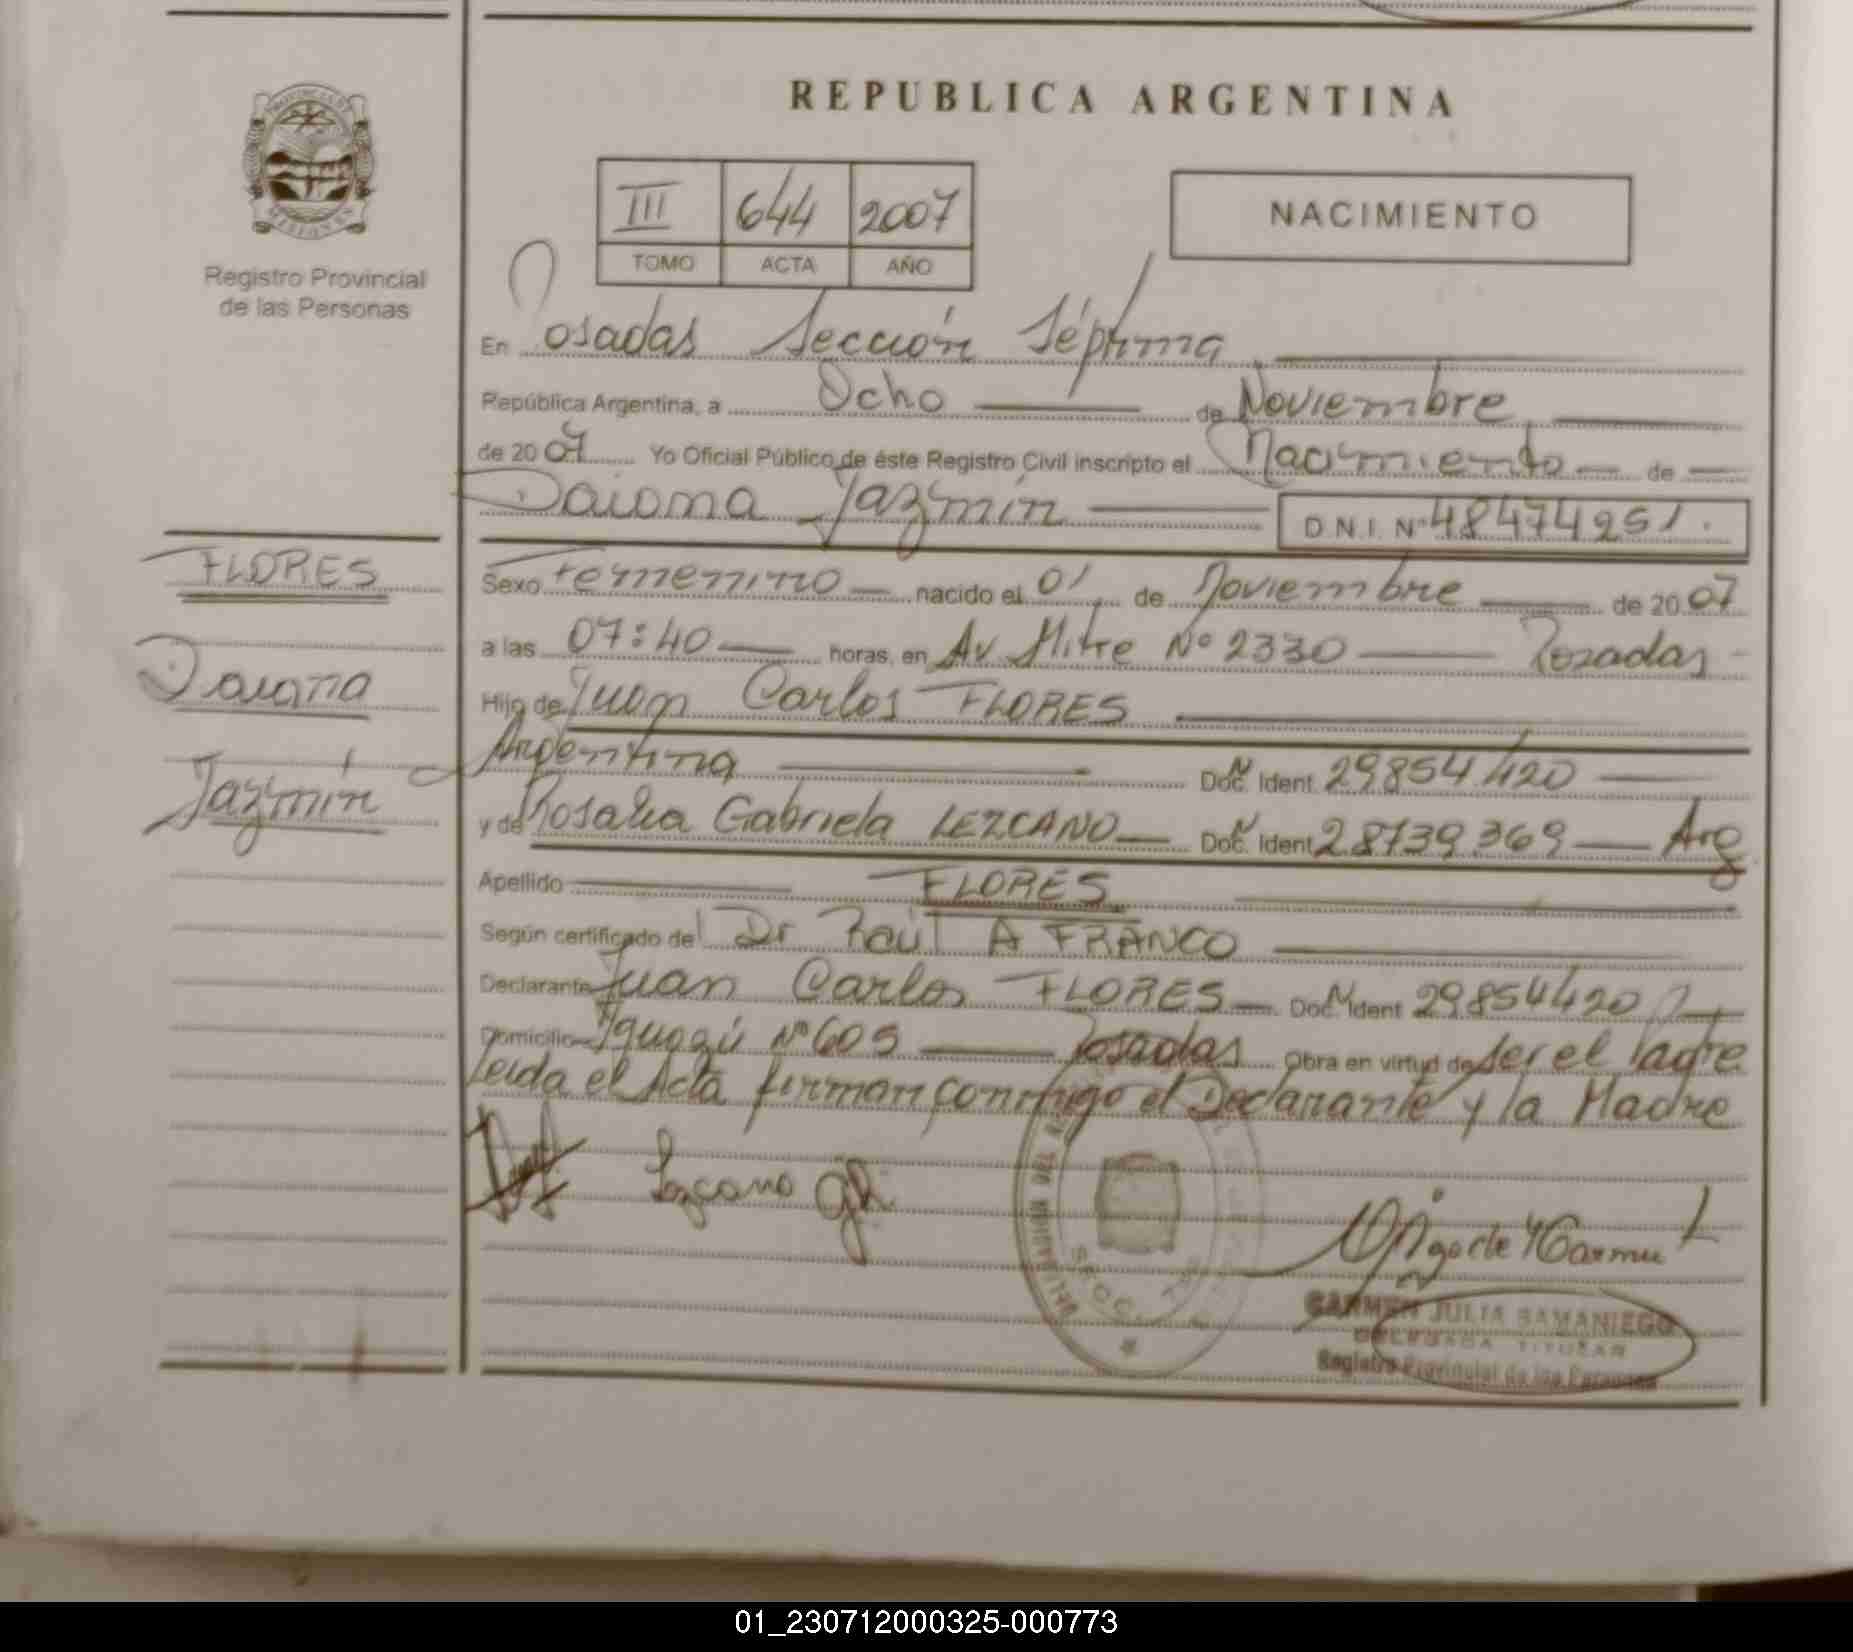 REPUBLICA ARGENTINA
PROVINCIA DE
MISIONES
Registro Provincial
de las Personas
III 644 2007
TOMO ACTA AÑO
NACIMIENTO
En Posadas Sección Séptima
República Argentina, a Ocho de Noviembre
de 2007 Yo Oficial Público de éste Registro Civil inscripto el Nacimiento de
Daiana Jazmín D.N.I. Nº 48474251.
FLORES
Daiana
Jazmín
Sexo Femenino nacido el 01 de Noviembre de 2007
a las 07:40 horas, en Av Mitre Nº 2330 Posadas
Hijo de Juan Carlos FLORES
Argentina Doc. Ident. 29854420
y de Rosalia Gabriela LEZCANO Doc. Ident. 28739369 Arg
Apellido FLORES
Según certificado del Dr Raúl A FRANCO
Declarante Juan Carlos FLORES Doc. Ident 29854420
Domicilio Iguazú Nº 605 Posadas Obra en virtud de ser el Padre
Leida el Acta firman conmigo el Declarante y la Madre
Lezcano
SECC
CARMEN JULIA SAMANIEGO
DELEGADA TITULAR
Registro Provincial de las Personas
01_230712000325-000773